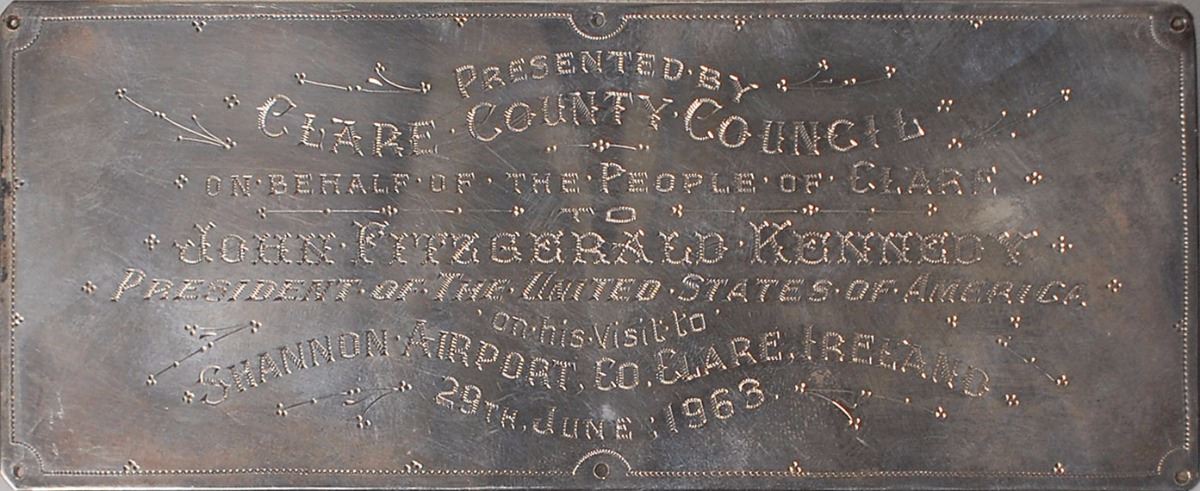 PRESENTED·BY
CLARE·COUNTY·COUNCIL
ON·BEHALF·OF THE·PEOPLE·OF CLARE
TO
JOHN·FITZGERALD·KENNEDY
PRESIDENT·OF·THE·UNITED·STATES·OF·AMERICA
·on·his·visit·to·
SHANNON·AIRPORT, CO. CLARE, IRELAND
29TH, JUNE, 1963.